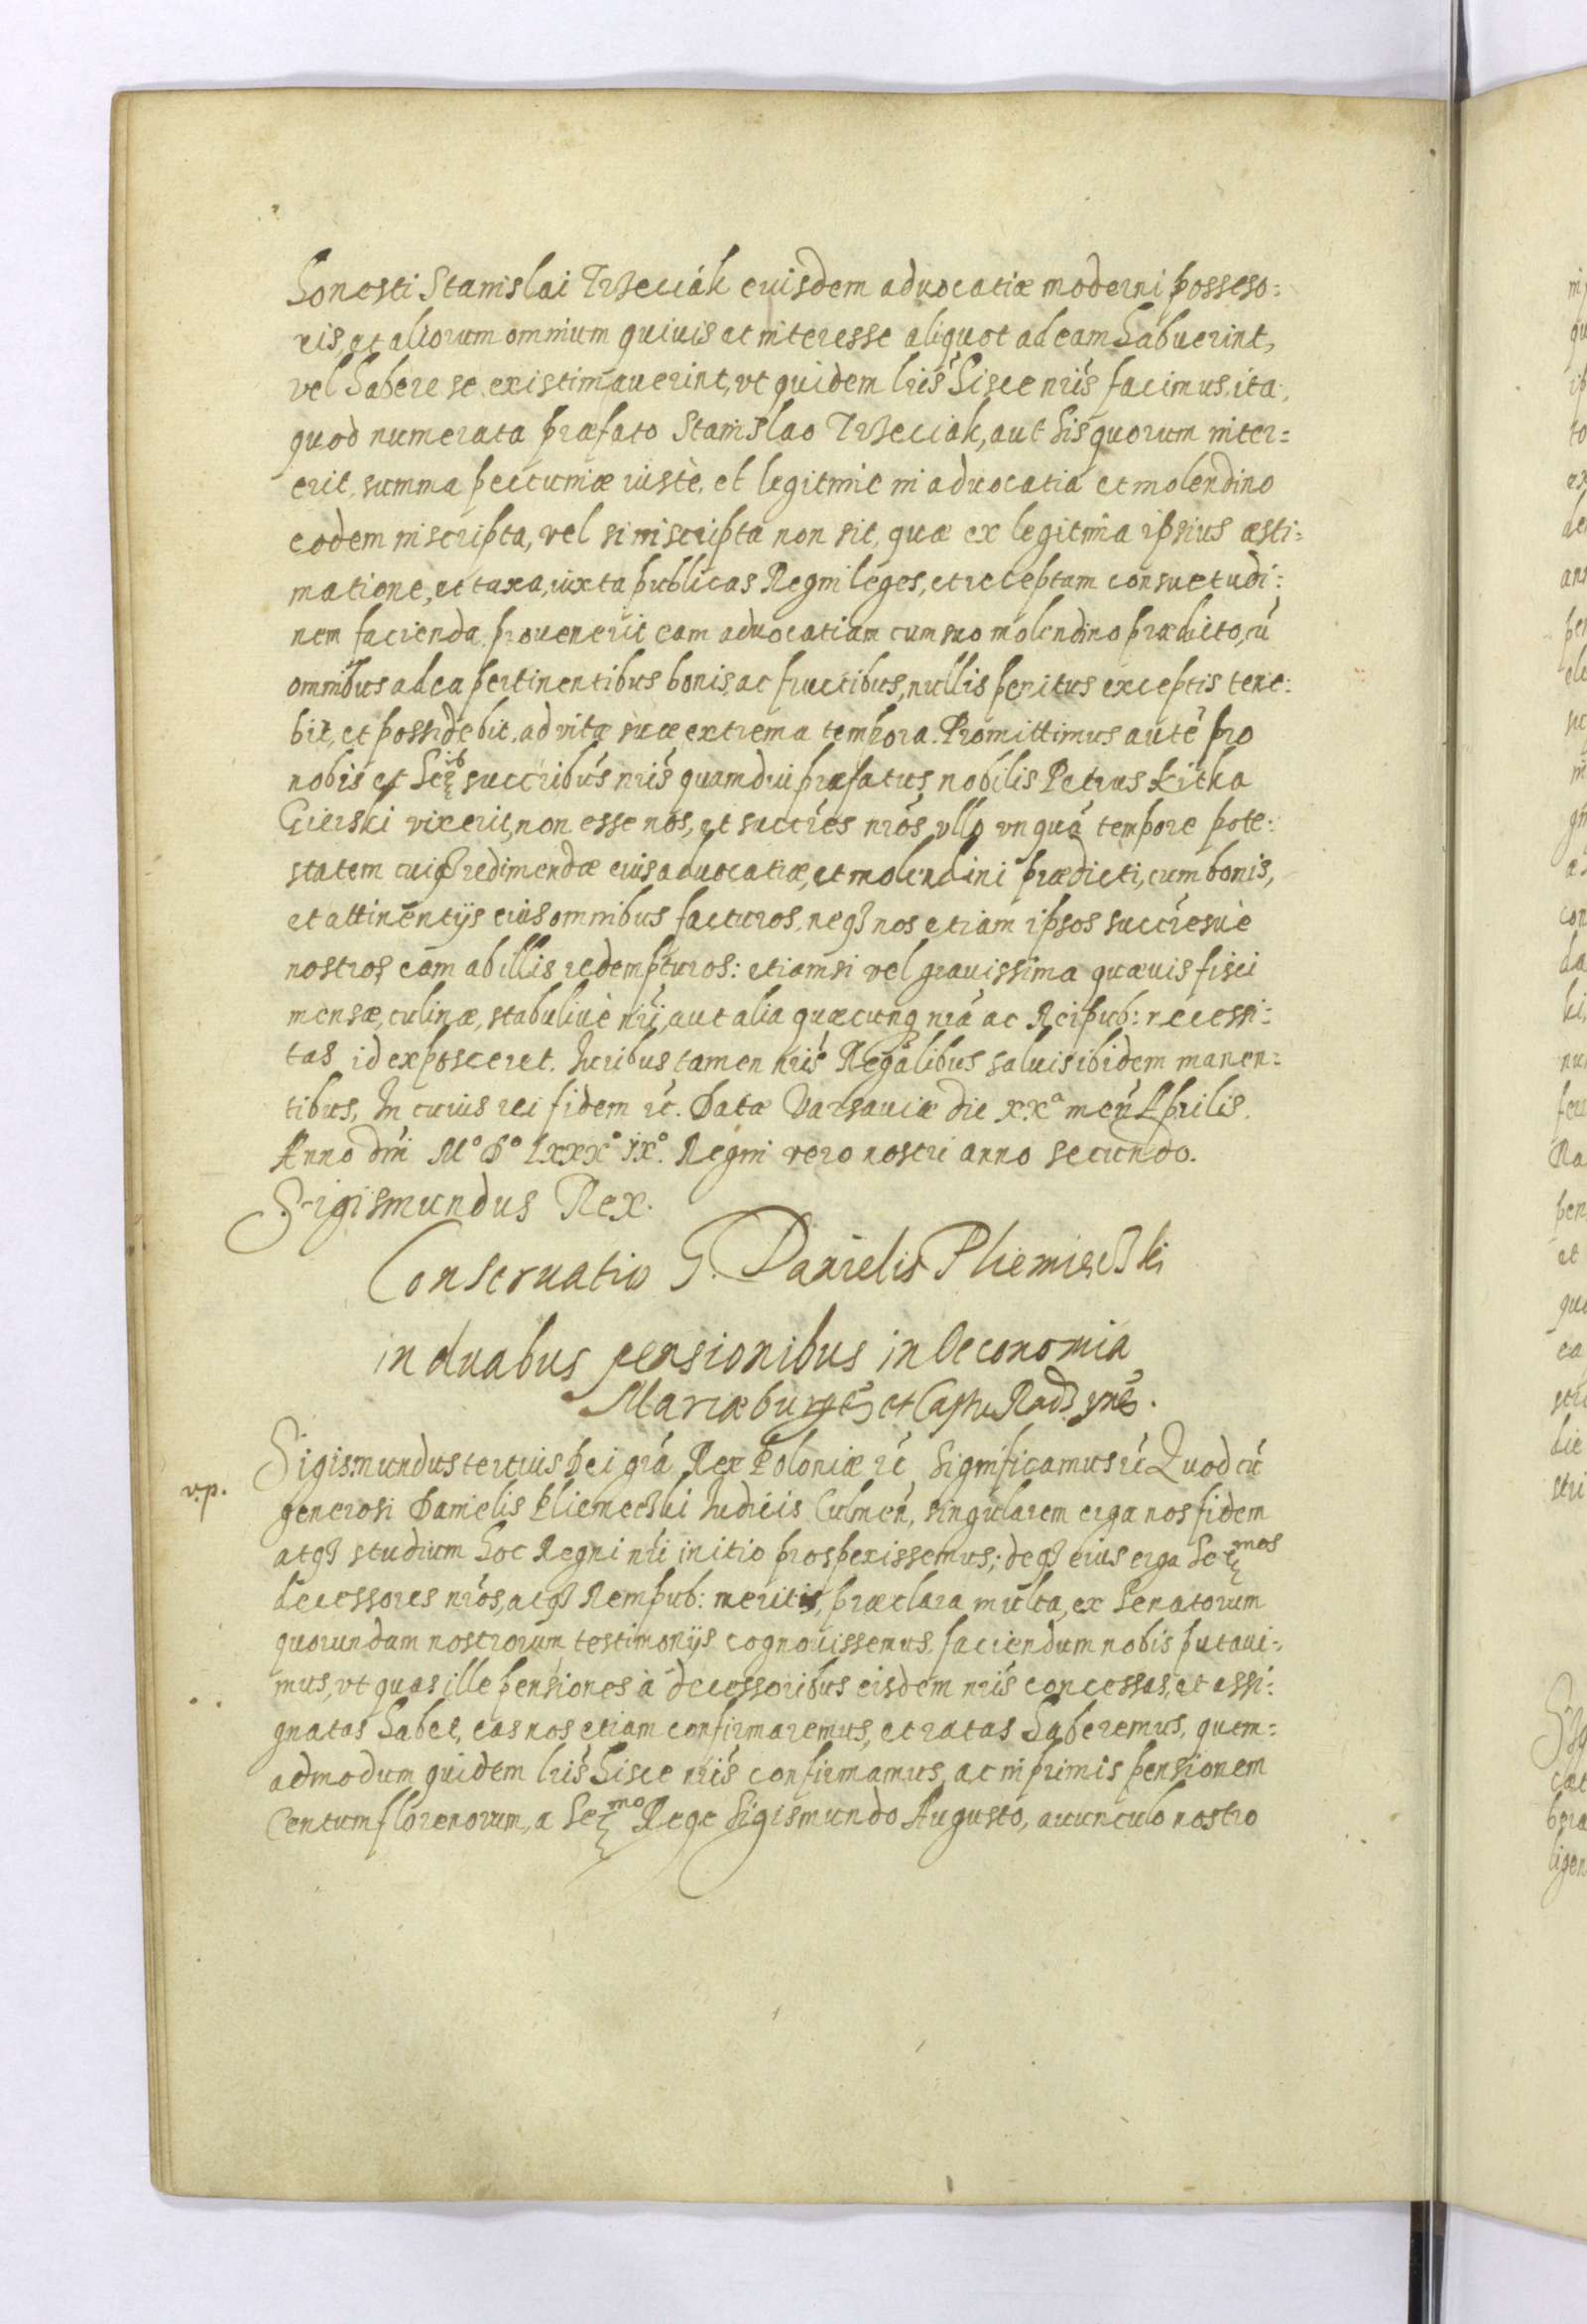 honesti Stanislai Trzeciak eiusdem advocatiæ moderni posseso:
ris, et aliorum omnium quiuis ac interesse aliquot ad eam habuerint,
vel habere se existimauerint, vt quidem lris hisce nris facimus, ita,
quod numerata præfato Stanislao Trzeciak, aut his quorum inter:
erit, summa peccuniæ iustè, et legitime in aduocatia et molendino
eodem inscripta, vel si inscripta non sit, quæ ex legitima ipsius æsti:
matione, et taxa, iuxta publicas Regni leges, et receptam consuetudi:
nem facienda prouenerit eam aduocatiam cum suo molendino prædicto, cū
omnibus ad ea pertinentibus bonis, ac fructibus, nullis penitus exceptis tene:
bit, et possidebit, ad vitæ suæ extrema tempora. Promittimus autē pro
nobis et Ser^ib succribus nris quamdiu præfatus nobilis Petrus Kitka
Gierski vixerit, non esse nos, et succres nros vllo vnquā tempore pote:
statem cuiq3 redimendæ eius aduocatiæ, et molendini prædicti, cum bonis,
et attinentijs eius omnibus facturos, neq3 nos etiam ipsos succresuè
nostros eam ab illis redempturos: etiamsi vel grauissima quæuis fisci
mensæ, culinæ, stabuliuè nri, aut alia quæcunq3 nra ac Reipub: necessi:
tas id exposceret. Iuribus tamen nris Regalibus saluis ibidem manen:
tibus, In cuius rei fidem etc. Datæ Varsauiæ die xx^a men Aprilis.
Anno dni M° D° Lxxx° ix°. Regni vero nostri anno secundo.
Sigismundus Rex.
Conseruatio G. Danielis Pliemięcki
in duabus pensionibus in Oeconomia
Mariæburgē et Captu Radzynē.
Sigismundus tertius Dei gra Rex Poloniæ etc Significamus etc Quod cū
v.p.
generosi Danielis Pliemecki Iudicis Culmen, singularem erga nos fidem
atq3 studium hoc Regni nri initio prospexissemus; deq3 eius erga Ser^mos
decessores nros, atq3 Rempub: meritis, præclara multa, ex Senatorum
quorundam nostrorum testimonijs cognouissemus, faciendum nobis putaui:
mus, vt quas ille pensiones à decessoribus eisdem nris concessas, et assi:
gnatas habet, eas nos etiam confirmaremus, et ratas haberemus, quem:
admodum quidem lris hisce nris confirmamus, ac inprimis pensionem
Centum florenorum, a Ser^mo Rege Sigismundo Augusto, auunculo nostro